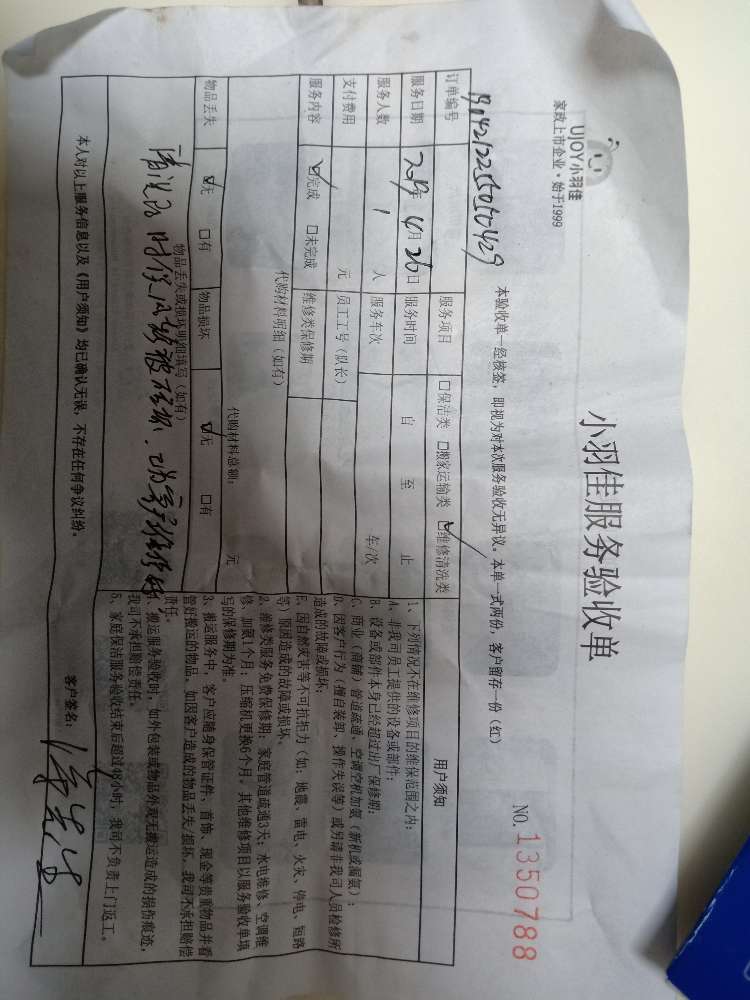 UJOY小羽佳
家政上市企业·始于1999
小羽佳服务验收单
NO. 1350788
本验收单一经核签，即视为对本次服务验收无异议。本单一式两份，客户留存一份（红）
订单编号
服务项目 □保洁类 □搬家运输类 ☑维修清洗类
服务日期 年 4月 26日 服务时间 自 至 止
服务人数 1 人 服务车次 车/次
支付费用 元 员工工号（队长）
服务内容 ☑完成 □未完成 维修类保修期
代购材料明细（如有）
代购材料总额： 元
物品丢失 ☑无 □有 物品损坏 ☑无 □有
物品丢失或损坏明细填写（如有）
清洗 时
用户须知
1、下列情况不在维修项目的维保范围之内：
A、非我司员工提供的设备或部件；
B、设备或部件本身已经超过出厂保修期；
C、商业（商铺）管道疏通、空调空机加氨（新机或漏氨）；
D、因客户行为（擅自装卸、操作失误等）或另请非我司人员检修所
造成的故障或损坏；
E、因自然灾害等不可抗拒力（如：地震、雷电、火灾、停电、短路
等）原因造成的故障或损坏。
2、维修类服务免费保修期：家庭管道疏通3天；水电维修、空调维
修、加氨1个月；压缩机更换6个月。其他维修项目以服务验收单填
写的保修期为准。
3、搬运服务中，客户应随身保管证件、首饰、现金等贵重物品并看
管好搬运的物品。如因客户造成的物品丢失/损坏，我司不承担赔偿
责任。
4、搬运服务验收时，如外包装或物品外观无搬运造成的损伤痕迹，
我司不承担赔偿责任。
5、家庭保洁服务验收结束后超过48小时，我司不负责上门返工。
本人对以上服务信息以及《用户须知》均已确认无误，不存在任何争议纠纷。
客户签名：